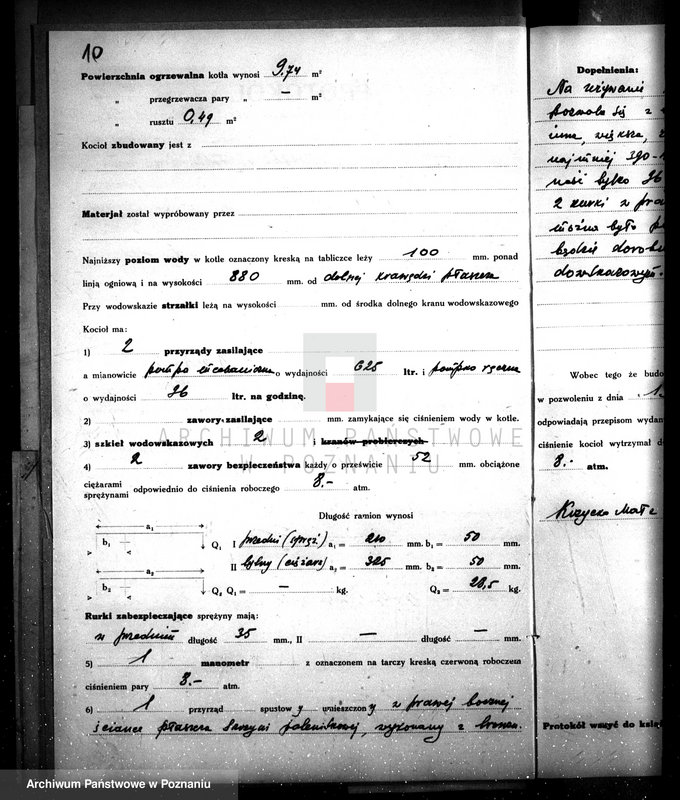 10
Powierzchnia ogrzewalna kotła wynosi 9.74 m²
„ przegrzewacza pary „ — m²
„ rusztu 0,49 m²
Kocioł zbudowany jest z
Materjał został wypróbowany przez
Najniższy poziom wody w kotle oznaczony kreską na tabliczce leży 100 mm. ponad
linją ogniową i na wysokości 880 mm. od dolnej krawędzi płaszcza
Przy wodowskazie strzałki leżą na wysokości mm. od środka dolnego kranu wodowskazowego
Kocioł ma:
1) 2 przyrządy zasilające
a mianowicie pompa mechaniczna o wydajności 625 ltr. i pompka ręczna
o wydajności 36 ltr. na godzinę.
2) zawory zasilające mm. zamykające się ciśnieniem wody w kotle.
3) szkieł wodowskazowych 2 i kranów probierczych
4) 2 zawory bezpieczeństwa każdy o prześwicie 52 mm. obciążone
ciężarami
sprężynami odpowiednio do ciśnienia roboczego 8.- atm.
Długość ramion wynosi
a₁
b₁ Q₁ I przedni (spręż) a₁ = 210 mm. b₁ = 50 mm.
a₂ II tylny (ciężar) a₂ = 325 mm. b₂ = 50 mm.
b₂ Q₂ Q₁ = — kg. Q₂ = 28,5 kg.
Rurki zabezpieczające sprężyny mają:
w przednim długość 35 mm., II — długość — mm.
5) 1 manometr z oznaczonem na tarczy kreską czerwoną roboczem
ciśnieniem pary 8.- atm.
6) 1 przyrząd spustowy umieszczony z prawej bocznej
ściance płaszcza skrzyni paleniskowej, wykonany z bronzu.
Dopełnienia:
Na używanie
pozwala się z
inna, większa,
najmniej 390
nosi tylko 36
2 kurki z
można było
będzie
Wobec tego że budo
w pozwoleniu z dnia
odpowiadają przepisom wydan
ciśnienie kocioł wytrzymał d
8.- atm.
Protokół wszyć do ksiąg
ARCHIWUM PAŃSTWOWE
W POZNANIU
Archiwum Państwowe w Poznaniu